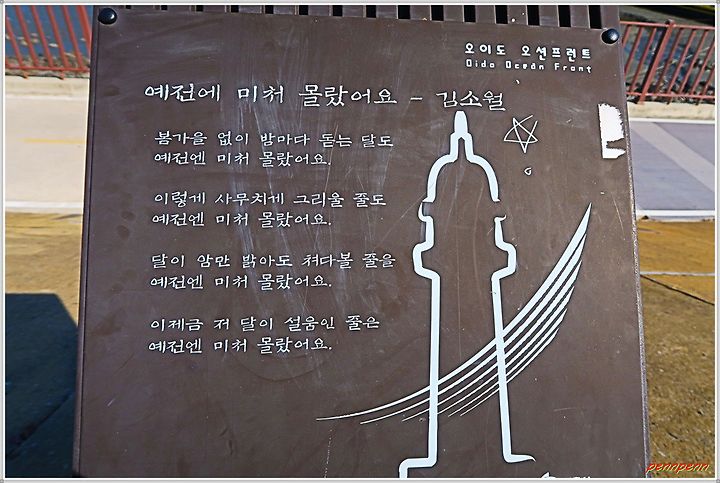 오이도 오션프런트
Oido Ocean Front
예전에 미처 몰랐어요 - 김소월
봄가을 없이 밤마다 돋는 달도
예전엔 미처 몰랐어요.
이렇게 사무치게 그리울 줄도
예전엔 미처 몰랐어요.
달이 암만 밝아도 쳐다볼 줄을
예전엔 미처 몰랐어요.
이제금 저 달이 설움인 줄은
예전엔 미처 몰랐어요.
pennpenn